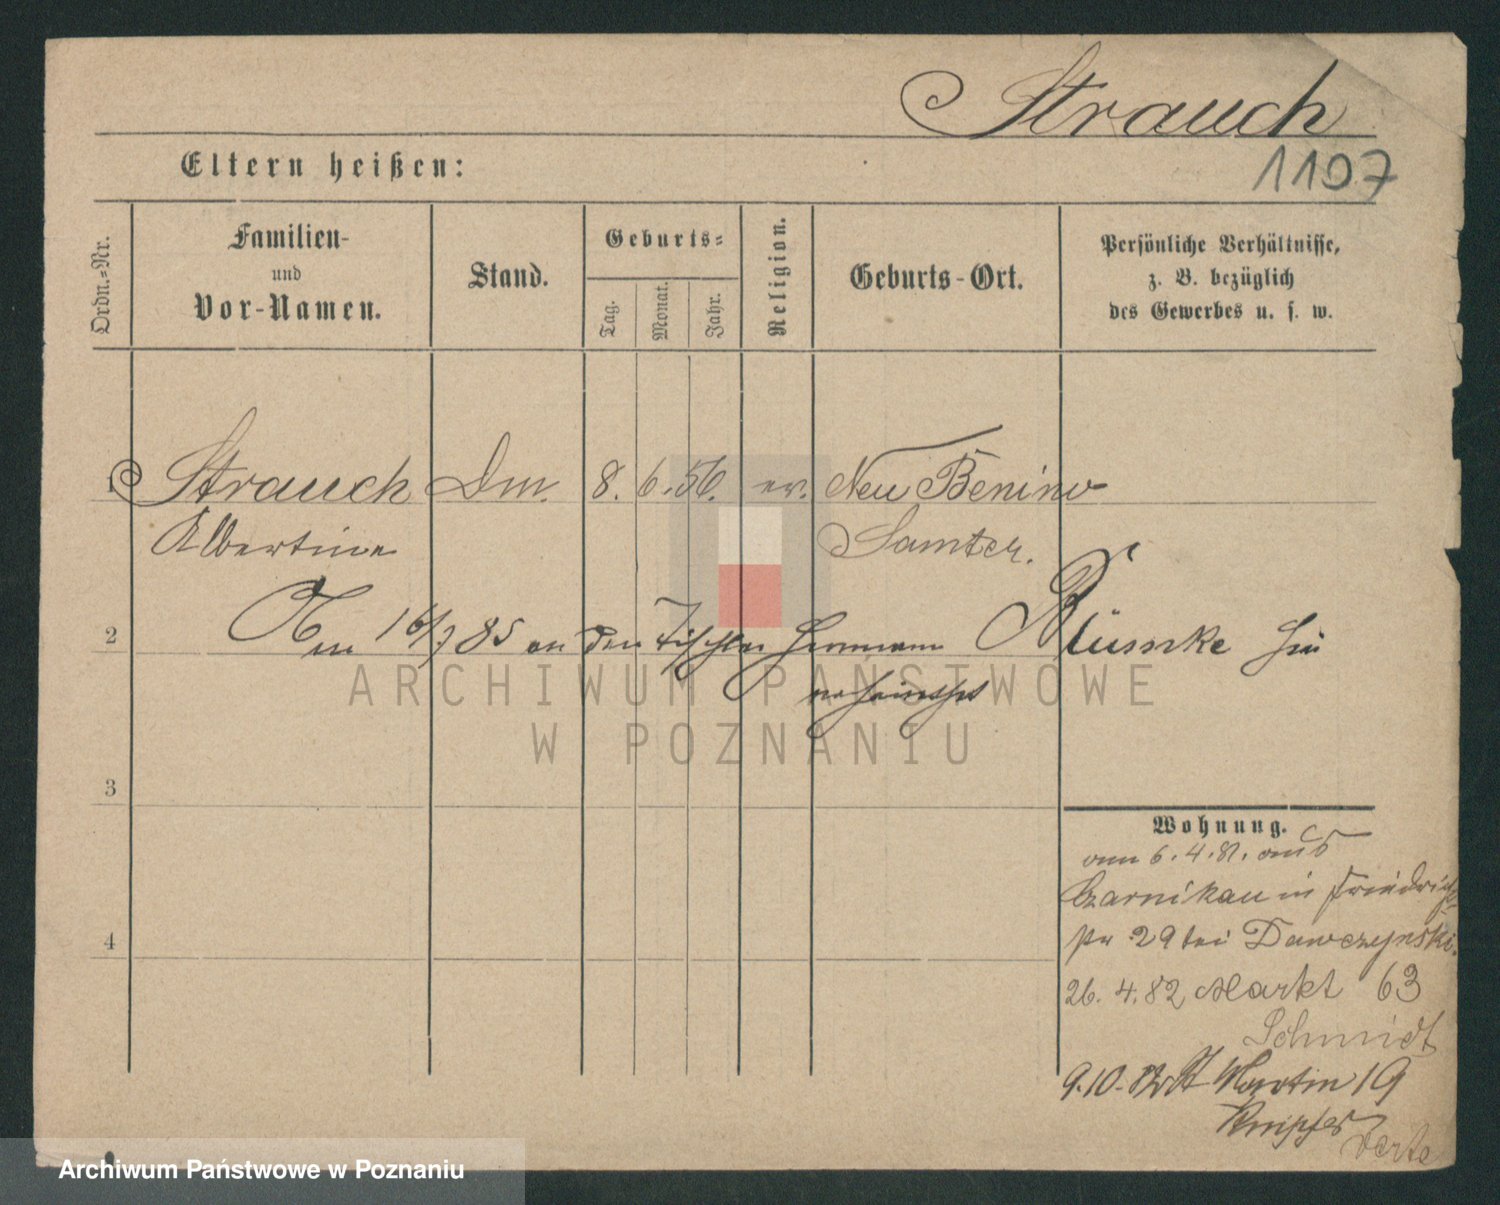 Strauch
1197
Eltern heißen:
Ordn.-Nr.
Familien-
und
Vor-Namen.
Stand.
Geburts-
Tag.
Monat.
Jahr.
Religion.
Geburts-Ort.
Persönliche Verhältnisse,
z. B. bezüglich
des Gewerbes u. s. w.
1 Strauch Dm. 8. 6. 56. ev. Neu Benino
Albertine Samter.
2 Am 16/7 85 an den Tischler Hermann hier
verheirathet
ARCHIWUM PAŃSTWOWE
W POZNANIU
3
Wohnung.
vom 6. 4. 81. aus
Czarnikau in Friedrich-
str 29 bei Dawczynski.
4
26. 4. 82 Markt 63
Schmidt
9. 10. 82 St Martin 19
verte
Archiwum Państwowe w Poznaniu